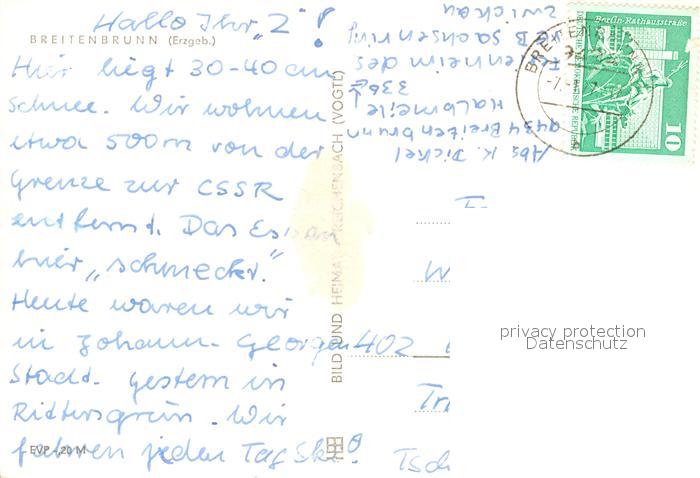 Hallo Ihr „2“!
BREITENBRUNN (Erzgeb.)
Hier liegt 30-40 cm
Schnee. Wir wohnen
etwa 500m von der
Grenze zur CSSR
entfernt. Das Essen
hier „schmeckt“.
Heute waren wir
in Johann-Georgen
Stadt. Gestern in
Rittersgrün. Wir
fahren jeden Tag Ski!
EVP -,20 M
BILD UND HEIMAT REICHENBACH (VOGTL)
Abs K. Dickel
9434 Breitenbrunn
Halbmeile
336
Ferienheim des
VEB Sachsenring
Zwickau
Berlin-Rathausstraße
10
402
privacy protection
Datenschutz